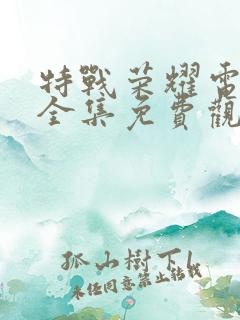 特戰荣耀電
全集免費觀
孤山樹下l
未经同意禁止转载